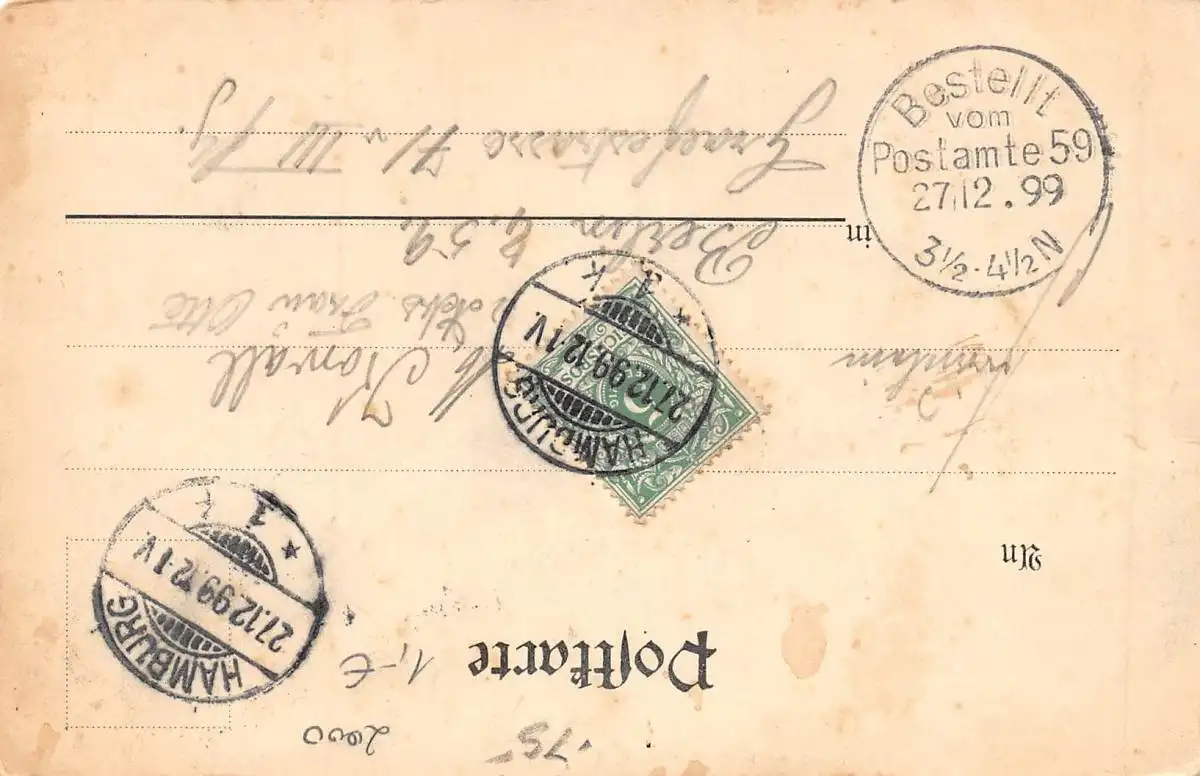 Postkarte
An
Fräulein
M. Kowall
Frau Otto
in
Berlin S. 59.
Graefestrasse 71 v III
HAMBURG
27.12.99.12-1V.
* 1 k
HAMBURG
27.12.99.12-1V.
* 1 k
Bestellt
vom
Postamte 59
27.12.99
3½-4½N
1,-€
2000
.75